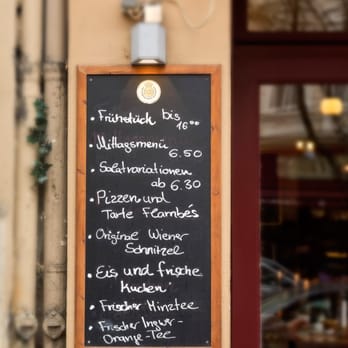 • Frühstück bis
16°°
• Mittagsmenü
6.50
• Salatvariationen
ab 6.30
• Pizzen und
Tarte Flambés
• Original Wiener
Schnitzel
• Eis und frische
Kuchen
• Frischer Minztee
• Frischer Ingwer-
Orange-Tee